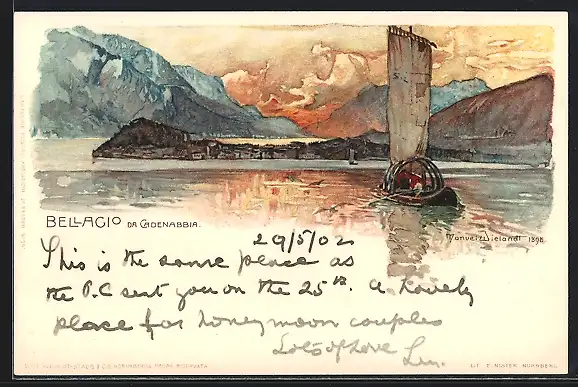 BELLAGIO DA CADENABBIA.
Manuel Wielandt 1898.
29/5/02
This is the same place as
the P.C sent you on the 25th. A lovely
place for honeymoon couples
Lots of Love
LIT. E. NISTER NÜRNBERG.